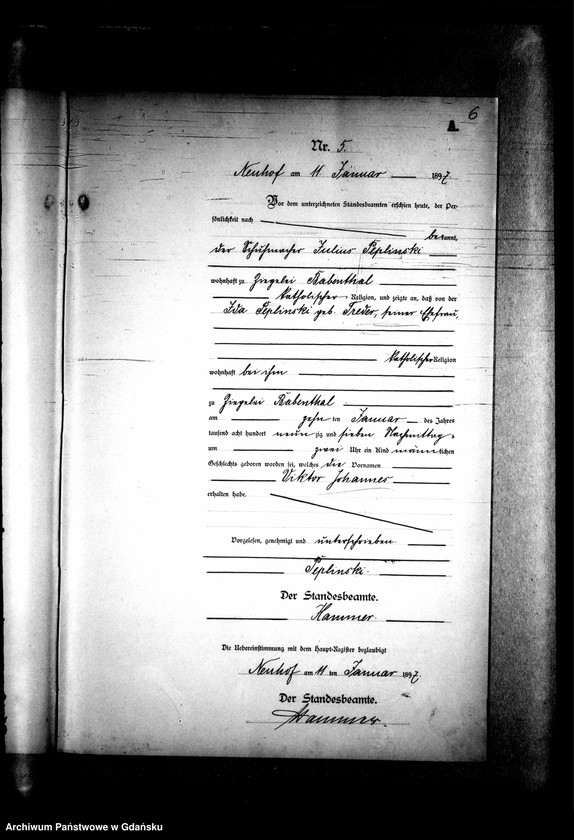 6
A.
Nr. 5.
Neuhof am 11 Januar 1897.
Vor dem unterzeichneten Standesbeamten erschien heute, der Per-
sönlichkeit nach
bekannt,
der Schuhmacher Julius Peplinski
wohnhaft zu Ziegelei Rabenthal
katholischer Religion, und zeigte an, daß von der
Ida Peplinski geb. Treder, seiner Ehefrau,
katholischer Religion
wohnhaft bei ihm
zu Ziegelei Rabenthal
am zehn ten Januar des Jahres
tausend acht hundert neun zig und sieben Nachmittags
um zwei Uhr ein Kind männlichen
Geschlechts geboren worden sei, welches die Vornamen
Viktor Johannes
erhalten habe.
Vorgelesen, genehmigt und unterschrieben.
Peplinski.
Der Standesbeamte.
Hammer.
Die Uebereinstimmung mit dem Haupt-Register beglaubigt
Neuhof am 11 ten Januar 1897.
Der Standesbeamte.
Hammer.
Archiwum Państwowe w Gdańsku